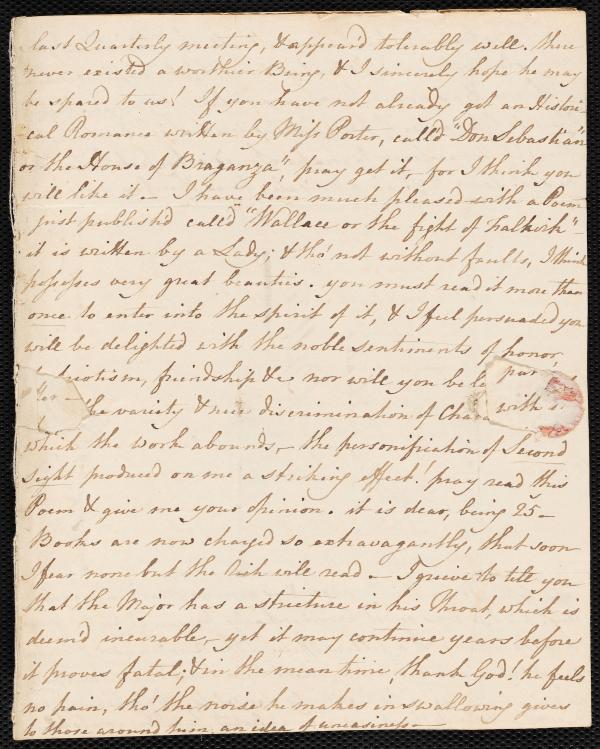 last Quarterly meeting, & appear'd tolerably well. there
never existed a worthier Being, & I sincerely hope he may
be spared to us! If you have not already got an Histori-
cal Romance written by Miss Porter, call'd "Don Sebastian"
or the House of Braganza", pray get it, for I think you
will like it – I have been much pleased with a Poem
just publish'd called "Wallace or the fight of Falkirk" –
it is written by a Lady; & tho' not without faults, I think
possesses very great beauties. you must read it more than
once to enter into the spirit of it, & I feel persuaded you
will be delighted with the noble sentiments of honor,
friendship & nor will you be par
the variety & nice discrimination of Chara with
which the work abounds, – the personification of Second
Sight produced on me a striking effect! pray read this
Poem & give me your opinion. it is dear, being 25 –
Books are now charged so extravagantly, that soon
I fear none but the Rich will read – I grieve to tell you
that the Major has a stricture in his Throat, which is
deem'd incurable, – yet it may continue years before
it proves fatal; & in the mean time, thank God! he feels
no pain, tho' the noise he makes in swallowing gives
to those around him, an idea of uneasiness –